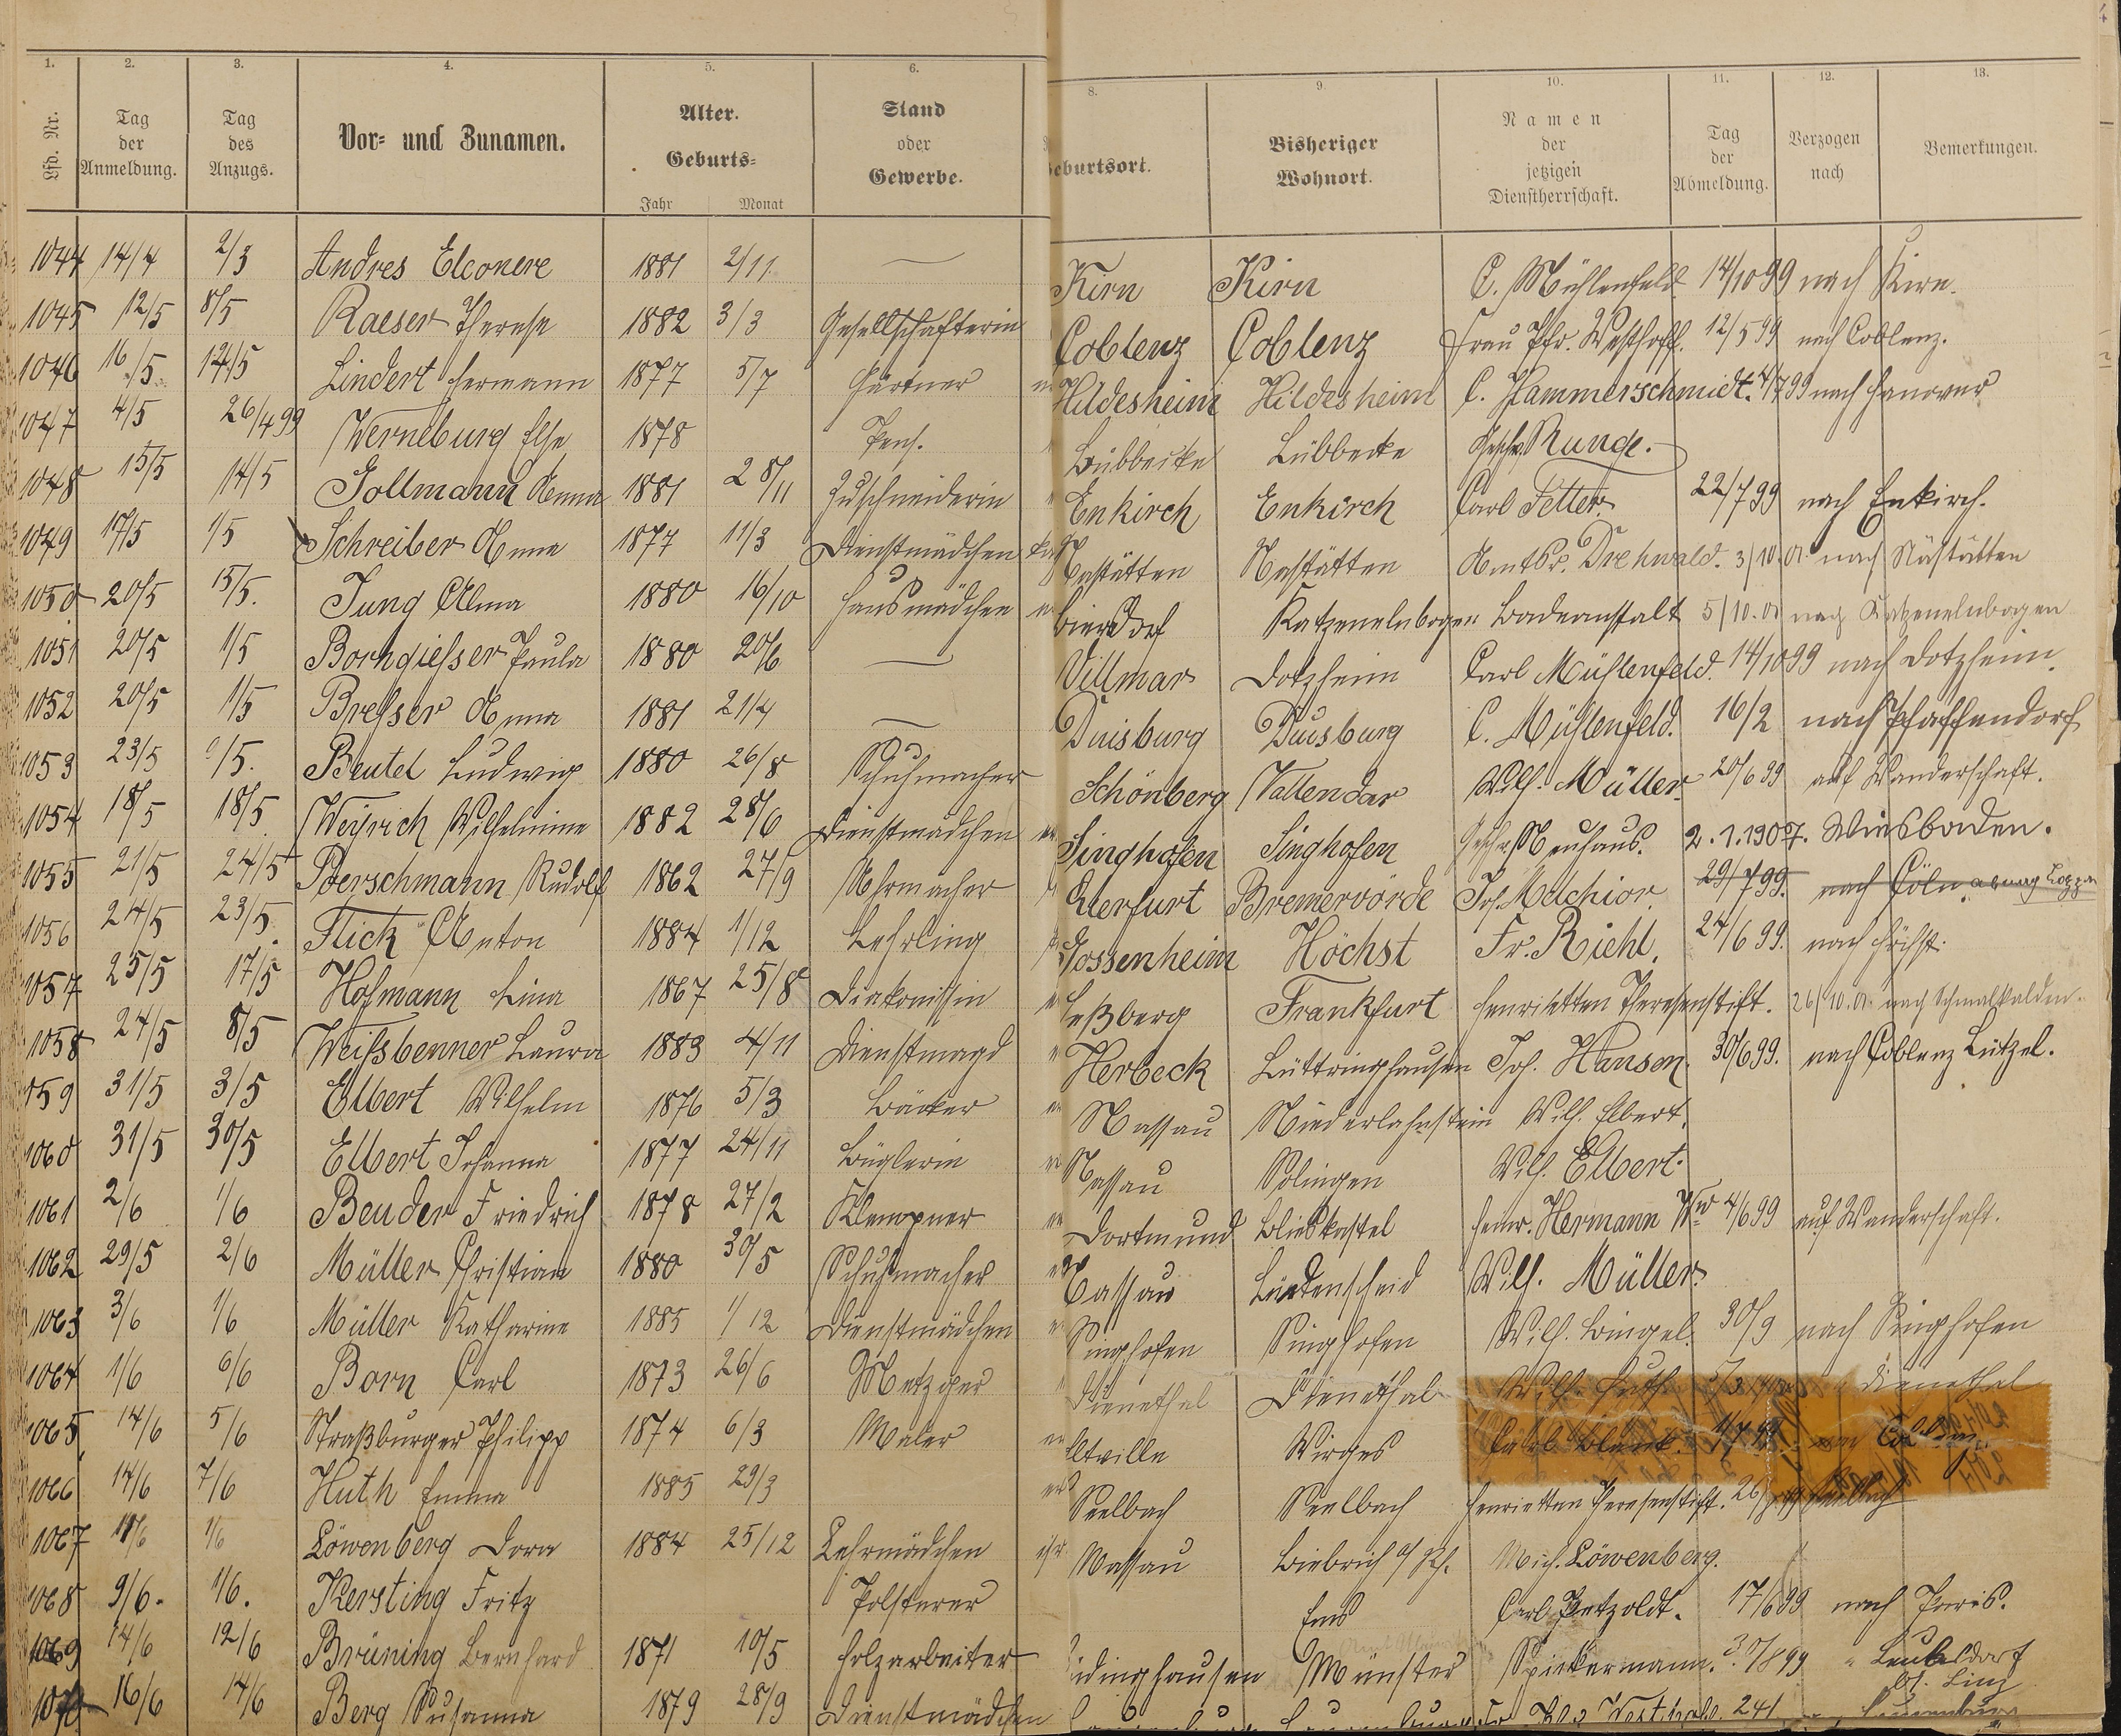 1. 2. 3. 4. 5. 6. 8. 9. 10. 11. 12. 13.
Lfd. Nr. Tag der Anmeldung. Tag des Anzugs. Vor- und Zunamen. Alter. Geburts- Jahr Monat Stand oder Gewerbe. Geburtsort. Bisheriger Wohnort. Namen der jetzigen Dienstherrschaft. Tag der Abmeldung. Verzogen nach Bemerkungen.
1044 14/4 2/3 Andres Eleonere 1881 2/11 — Kirn Kirn C. Mühlenfeld. 14/10 99 nach Kirn.
1045 12/5 8/5 Raeser Therese 1882 3/3 Gesellschafterin Coblenz Coblenz Frau Pfr. Westhoff. 12/5 99 nach Coblenz.
1046 16/5 14/5 Lindert Hermann 1877 5/7 Gärtner Hildesheim Hildesheim C. Hammerschmidt. 4/7 99 nach Hanover
1047 4/5 26/4 99 Werneburg Else 1878 Pens. Lübbecke Lübbecke Geschw. Runge.
1048 15/5 14/5 Sollmann Anna 1881 28/11 Zuschneiderin Enkirch Enkirch Carl Fetter. 22/7 99 nach Enkirch.
1049 17/5 1/5 Schreiber Anna 1877 11/3 Dienstmädchen Nastätten Nastätten Amtsr. Drehwald. 3/10.01. nach Nastätten
1050 20/5 15/5. Jung Alma 1880 16/10 Hausmädchen Katzenelnbogen Badeanstalt 5/10.01 nach Katzenelnbogen
1051 20/5 1/5 Borngiesser Paula 1880 20/6 — Villmar Dotzheim Carl Mühlenfeld. 14/10 99 nach Dotzheim.
1052 20/5 1/5 Bresser Anna 1881 21/4 — Duisburg Duisburg C. Mühlenfeld. 16/2 nach Pfaffendorf
1053 23/5 /5. Beutel Ludwig 1880 26/8 Schuhmacher Schönberg Vallendar Wilh. Müller. 20/6 99 auf Wanderschaft.
1054 18/5 18/5 Weyrich Wilhelmine 1882 28/6 Dienstmädchen Singhofen Singhofen Geschw. Neuhaus. 2.1.1907. Wiesbaden.
1055 21/5 24/5 Poerschmann Rudolf 1862 27/9 Uhrmacher Querfurt Bremervörde Jos. Melchior. 29/7 99. nach Cöln.
1056 24/5 23/5 Flick Anton 1884 1/12 Lehrling Sossenheim Höchst Fr. Riehl. 24/6 99. nach Höchst.
1057 25/5 17/5 Hofmann Lina 1867 25/8 Diakonissin Frankfurt Henrietten Theresenstift. 26/10.01. nach Schmalkalden.
1058 24/5 8/5 Weissbenner Laura 1883 4/11 Dienstmagd Herbeck Lüttringhausen Joh. Hansen. 30/6 99. nach Coblenz Lützel.
1059 31/5 3/5 Elbert Wilhelm 1876 5/3 Bäcker Nassau Niederlahnstein Wilh. Elbert.
1060 31/5 30/5 Elbert Johanna 1877 24/11 Büglerin Nassau Solingen Wilh. Elbert.
1061 2/6 1/6 Beuder Friedrich 1878 27/2 Klempner Dortmund Blieskastel Heinr. Hermann Ww 4/6 99 auf Wanderschaft.
1062 29/5 2/6 Müller Christian 1880 30/5 Schuhmacher Nassau Lüdenscheid Wilh. Müller.
1063 3/6 1/6 Müller Katharine 1885 1/12 Dienstmädchen Singhofen Singhofen Wilh. Bingel. 30/9 nach Singhofen
1064 1/6 6/6 Born Carl 1873 26/6 Metzger Dienethal Dienethal Wilh. Huth Dienethal
1065 14/6 5/6 Straßburger Philipp 1874 6/3 Maler Eltville Wirges Carl Blank. 1/7 99.
1066 14/6 7/6 Huth Emma 1885 29/3 Seelbach Seelbach Henrietten Theresenstift. 26/ Seelbach
1067 1/6 Löwenberg Dora 1884 25/12 Lehrmädchen Nassau Biebrich a/Rh. Mich. Löwenberg.
1068 9/6. 1/6. Kersting Fritz Polsterer Ems Carl Petzoldt. 17/6 99 nach Paris.
1069 14/6 12/6 Brüning Bernhard 1871 10/5 Holzarbeiter Münster Spiekermann. 3/8 99 " Leubsdorf
bf. Linz
1070 16/6 14/6 Berg Susanna 1879 28/9 Dienstmädchen